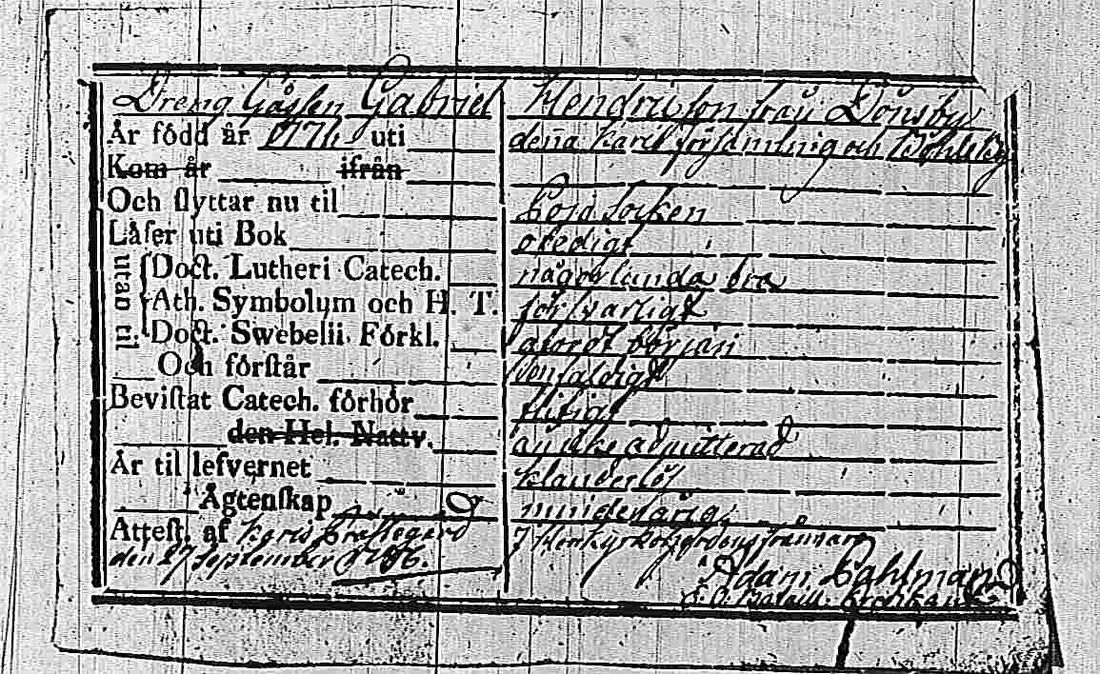 Dreng Gåssen Gabriel Hendricsson från Dönsby
År född år 1771 uti denna Karis församling och
Kom år ifrån
Och flyttar nu til Lojo Socken
Låser uti Bok oledigt
utan til: Doct. Lutheri Catech. någorlunda bra
Ath. Symbolum och H. T. försvarligt
Doct. Swebelii Fôrkl. början
Och fôrstår enfaldigt
Bevistat Catech. fôrhôr flitigt
den Hel. Nattv. admitterad
År til lefvernet klanderlös
Ågtenskap
Attest. af Karis Prästegård
den 27 September 1786.
Adam Pahlman